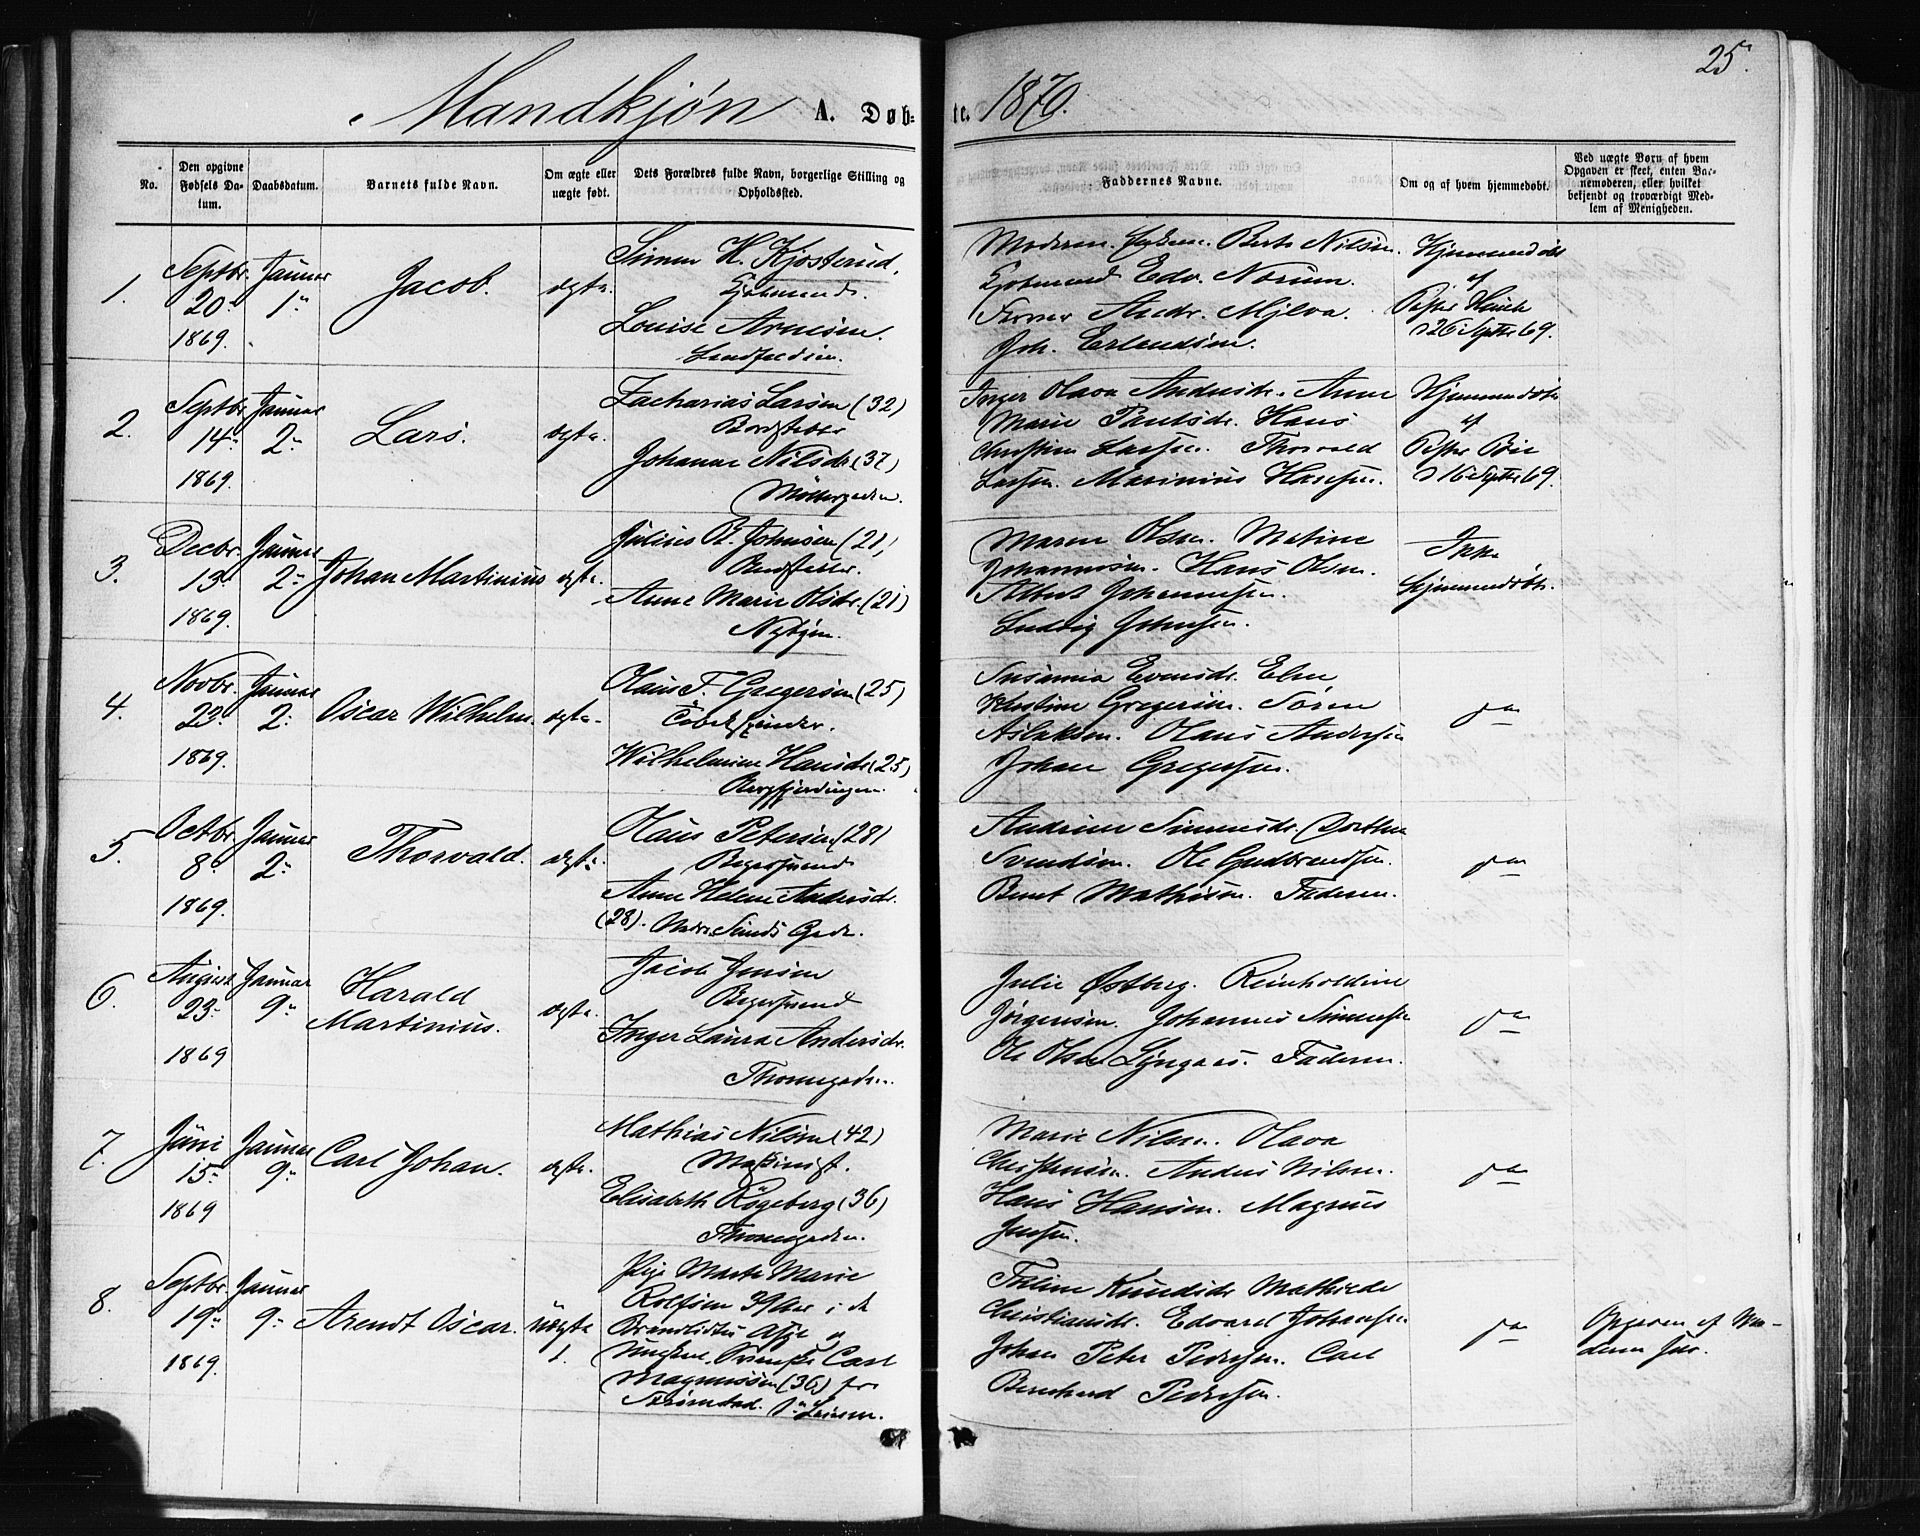 25.
Mandkjøn A. Døb-
te. 1870.
No.
Den opgivne Fødsels Datum.
Daabsdatum.
Barnets fulde Navn.
Om ægte eller uægte født.
Dets Forældres fulde Navn, borgerlige Stilling og Opholdssted.
Faddernes Navne.
Om og af hvem hjemmedøbt.
Ved uægte Børn af hvem Opgaven er skeet, enten Barnemoderen, eller hvilket bekjendt og troværdigt Medlem af Menigheden.
1.
Septbr. 20 1869.
Januar 1
Jacob.
ægte.
Simen H. Kjøsterud,
Louise Arnesen.
Moderen. Berte Nilsen.
Edv. Norum.
Andr. Mjelva.
Joh. Erlandsen.
Hjemmedøbt
af
26 Septbr 69.
2.
Septbr 14 1869.
Januar 2
Lars.
ægte.
Zacharias Larsen (32)
Johanne Nilsdr. (37)
Møllergaden.
Inger Olava Andersdr. Anne
Marie Paulsdr. Hans
Christian Larsen. Thorvald
Larsen. Marinius Hansen.
Hjemmedøbt
af
Prester Bie
16 Septbr 69.
3.
Decbr. 13 1869.
Januar 2
Johan Martinius
ægte.
Julius B. Johnsen (21)
Anne Marie Olsdr. (21)
Nybyen.
Maren Olsen. Matine
Johannesen. Hans Olsen.
Albert Johannesen.
Ludvig Johnsen.
Ikke
hjemmedøbt.
4.
Novbr. 23 1869.
Januar 2
Oscar Wilhelm.
ægte.
Olaus F. Gregersen (25)
Tobakspinder.
Wilhelmine Hansdr (25)
Bergfjerdingen.
Susanna Evensdr. Elen
Kristine Gregersen. Søren
Aslaksen. Olaus Andersen
Johan Gregersen.
5.
Octbr. 8 1869.
Januar 2
Thorvald.
ægte.
Olaus Petersen (28)
Bøgersvend
Anne Helene Andersdr.
(28). Nedre Sunds Gade.
Andrine Simensdr. Dorthea
Svendsen. Ole Gudbrandsen.
Bent Mathisen. Faderen.
6.
August 23 1869
Januar 9
Harald
Martinius.
ægte.
Jacob Jensen
Bøgersvend
Inger Laura Andersdr.
Thornegaden.
Julie Østberg. Reinholdine
Jørgensen. Johannes Simensen
Ole Olsen Lyngaas. Faderen.
7.
Juni 15 1869
Januar 9
Carl Johan.
ægte.
Mathias Nilsen (42)
Maskinist.
Elisabeth Røgeberg (36)
Thornegaden.
Marie Nilsen. Olava
Christensen. Anders Nilsen.
Hans Hansen. Magnus
Jensen.
8.
Septbr. 19 1869.
Januar 9
Arendt Oscar.
uægte
1.
Pige Marte Marie
Rolfsen
Carl
Magnussen (36) fra
Strømstad.
Knudsdr Mathilde
Christiansdr. Edvard Johansen
Johan Peter Pedersen. Carl
Bernhard Pedersen.
Opgaven af Mo-
deren selv.